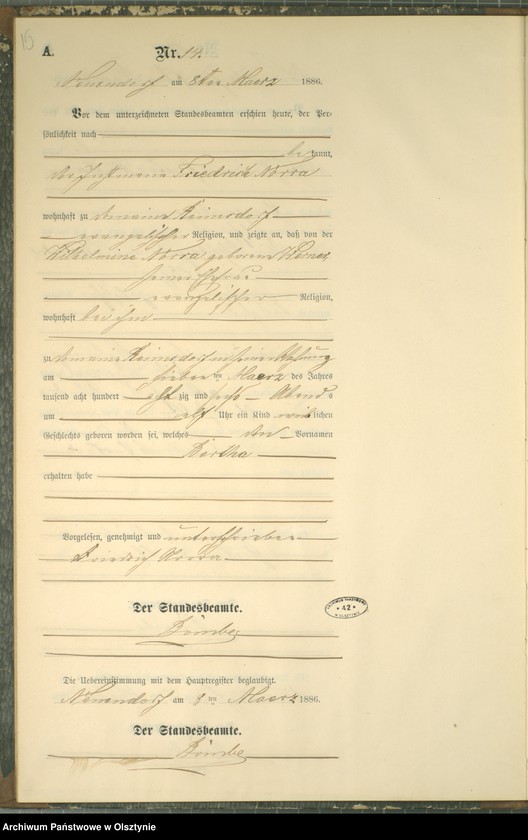 A. Nr. 14.
Neuendorf am 8ten Maerz 1886.
Vor dem unterzeichneten Standesbeamten erschien heute, der Per-
sönlichkeit nach
be kannt,
der Friedrich Norra
wohnhaft zu Reimsdorf
evangelischer Religion, und zeigte an, daß von der
Wilhelmine Norra geborene
seiner Ehefrau
evangelischer Religion,
wohnhaft bei ihm
zu Reimsdorf in seiner Wohnung
am sieben ten Maerz des Jahres
tausend acht hundert acht zig und sechs Abends
um elf Uhr ein Kind weiblichen
Geschlechts geboren worden sei, welches den Vornamen
Bertha
erhalten habe
Vorgelesen, genehmigt und unterschrieben
Friedrich Norra
Der Standesbeamte.
Die Uebereinstimmung mit dem Hauptregister beglaubigt.
Neuendorf am 8 ten Maerz 1886.
Der Standesbeamte.
* 42 *
Archiwum Państwowe w Olsztynie